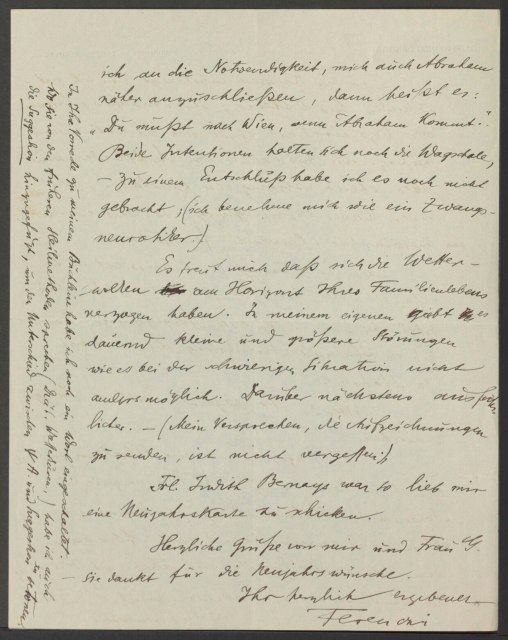 ich an die Notwendigkeit, mich auch Abraham
näher anzuschließen, dann heißt es:
„Du mußt nach Wien, wenn Abraham kommt“.
Beide Intentionen halten sich noch die Wagschale,
– zu einem Entschluß habe ich es noch nicht
gebracht; (ich benehme mich wie ein Zwangs-
neurotiker.)
Es freut mich daß sich die Wetter-
wolken am Horizont Ihres Familienlebens
verzogen haben. In meinem eigenen gibt es
dauernd kleine und größere Störungen
wie es bei der schwierigen Situation nicht
anders möglich. Darüber nächstens ausführ-
licher. – (Mein Versprechen, die Aufzeichnungen
zu senden, ist nicht vergessen!)
Frl. Judith Bernays war so lieb mir
eine Neujahrskarte zu schicken.
Herzliche Grüße von mir und Frau G.
Sie dankt für die Neujahrswünsche.
Ihr herzlich ergebener
Ferenczi
In Ihr Vorrede zu meinem Büchlein habe ich noch ein Wort eingeschaltet.
Wo Sie von den früheren Heilmethoden sprechen (Diät, Wasserkuren,) habe ich auch
die Suggestion hinzugefügt, um den Unterschied zwischen ΨA und Suggestion zu betonen.